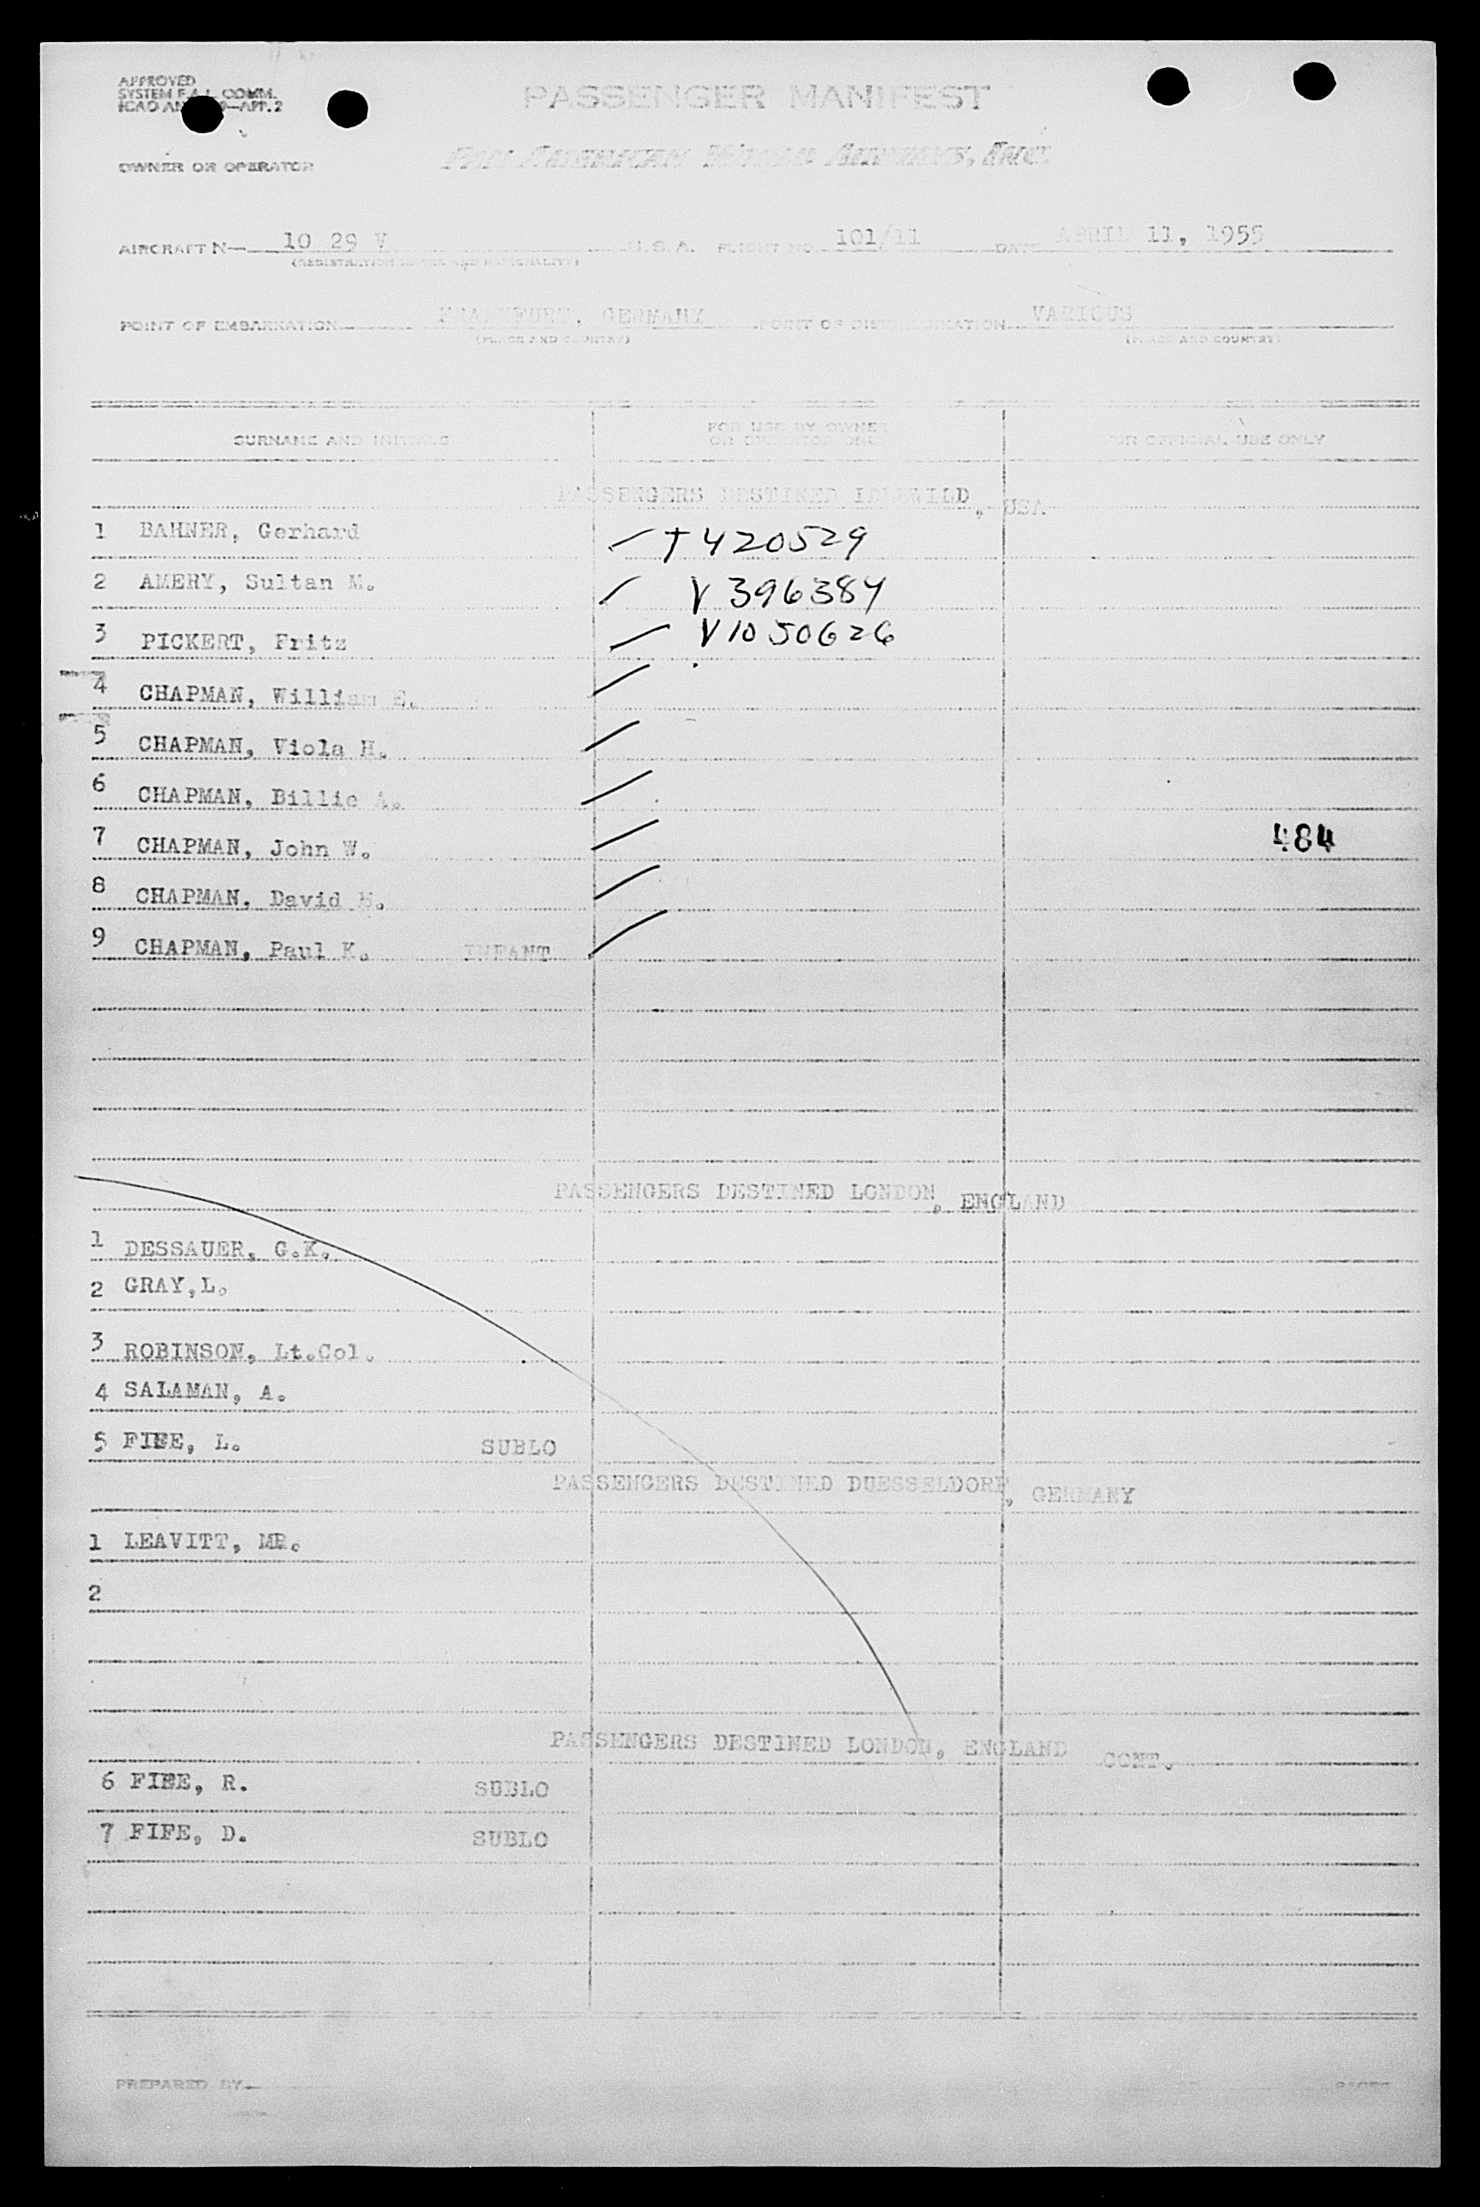 APPROVED
SYSTEM F.A.L. COMM.
ICAO AN 9—APP. 2
PASSENGER MANIFEST
OWNER OR OPERATOR
PAN AMERICAN WORLD AIRWAYS, INC.
AIRCRAFT N— 10 29 V U. S. A. FLIGHT NO. 101/11 DATE APRIL 11, 1955
(REGISTRATION MARKS AND NATIONALITY)
POINT OF EMBARKATION FRANKFURT, GERMANY POINT OF DISEMBARKATION VARIOUS
(PLACE AND COUNTRY) (PLACE AND COUNTRY)
SURNAME AND INITIALS FOR USE BY OWNER OR OPERATOR ONLY FOR OFFICIAL USE ONLY
PASSENGERS DESTINED IDLEWILD, USA
1 BAHNER, Gerhard T420529
2 AMERY, Sultan M. V 396384
3 PICKERT, Fritz V1050626
4 CHAPMAN, William E.
5 CHAPMAN, Viola H.
6 CHAPMAN, Billie A.
7 CHAPMAN, John W. 484
8 CHAPMAN, David
9 CHAPMAN, Paul K. INFANT
PASSENGERS DESTINED LONDON, ENGLAND
1 DESSAUER, G.K.
2 GRAY,L.
3 ROBINSON, Lt.Col.
4 SALAMAN, A.
5 FIFE, L. SUBLO
PASSENGERS DESTINED DUESSELDORF, GERMANY
1 LEAVITT, MR.
2
PASSENGERS DESTINED LONDON, ENGLAND CONT.
6 FIFE, R. SUBLO
7 FIFE, D. SUBLO
PREPARED BY PAGES